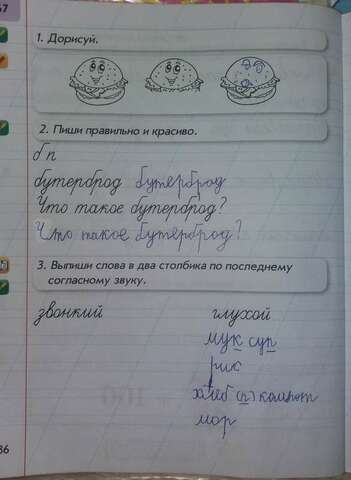 47
1. Дорисуй.
2. Пиши правильно и красиво.
б п
бутерброд бутерброд
Что такое бутерброд?
Что такое бутерброд?
3. Выпиши слова в два столбика по последнему
согласному звуку.
звонкий глухой
мук суп
рик
хлеб (п) компот
мор
86